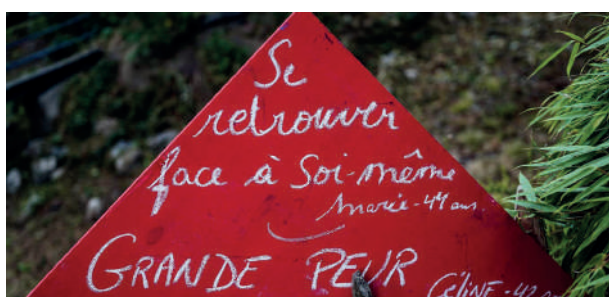 Se
retrouver
face à Soi-même
Marie - 44 ans
GRANDE PEUR
Céline - 42